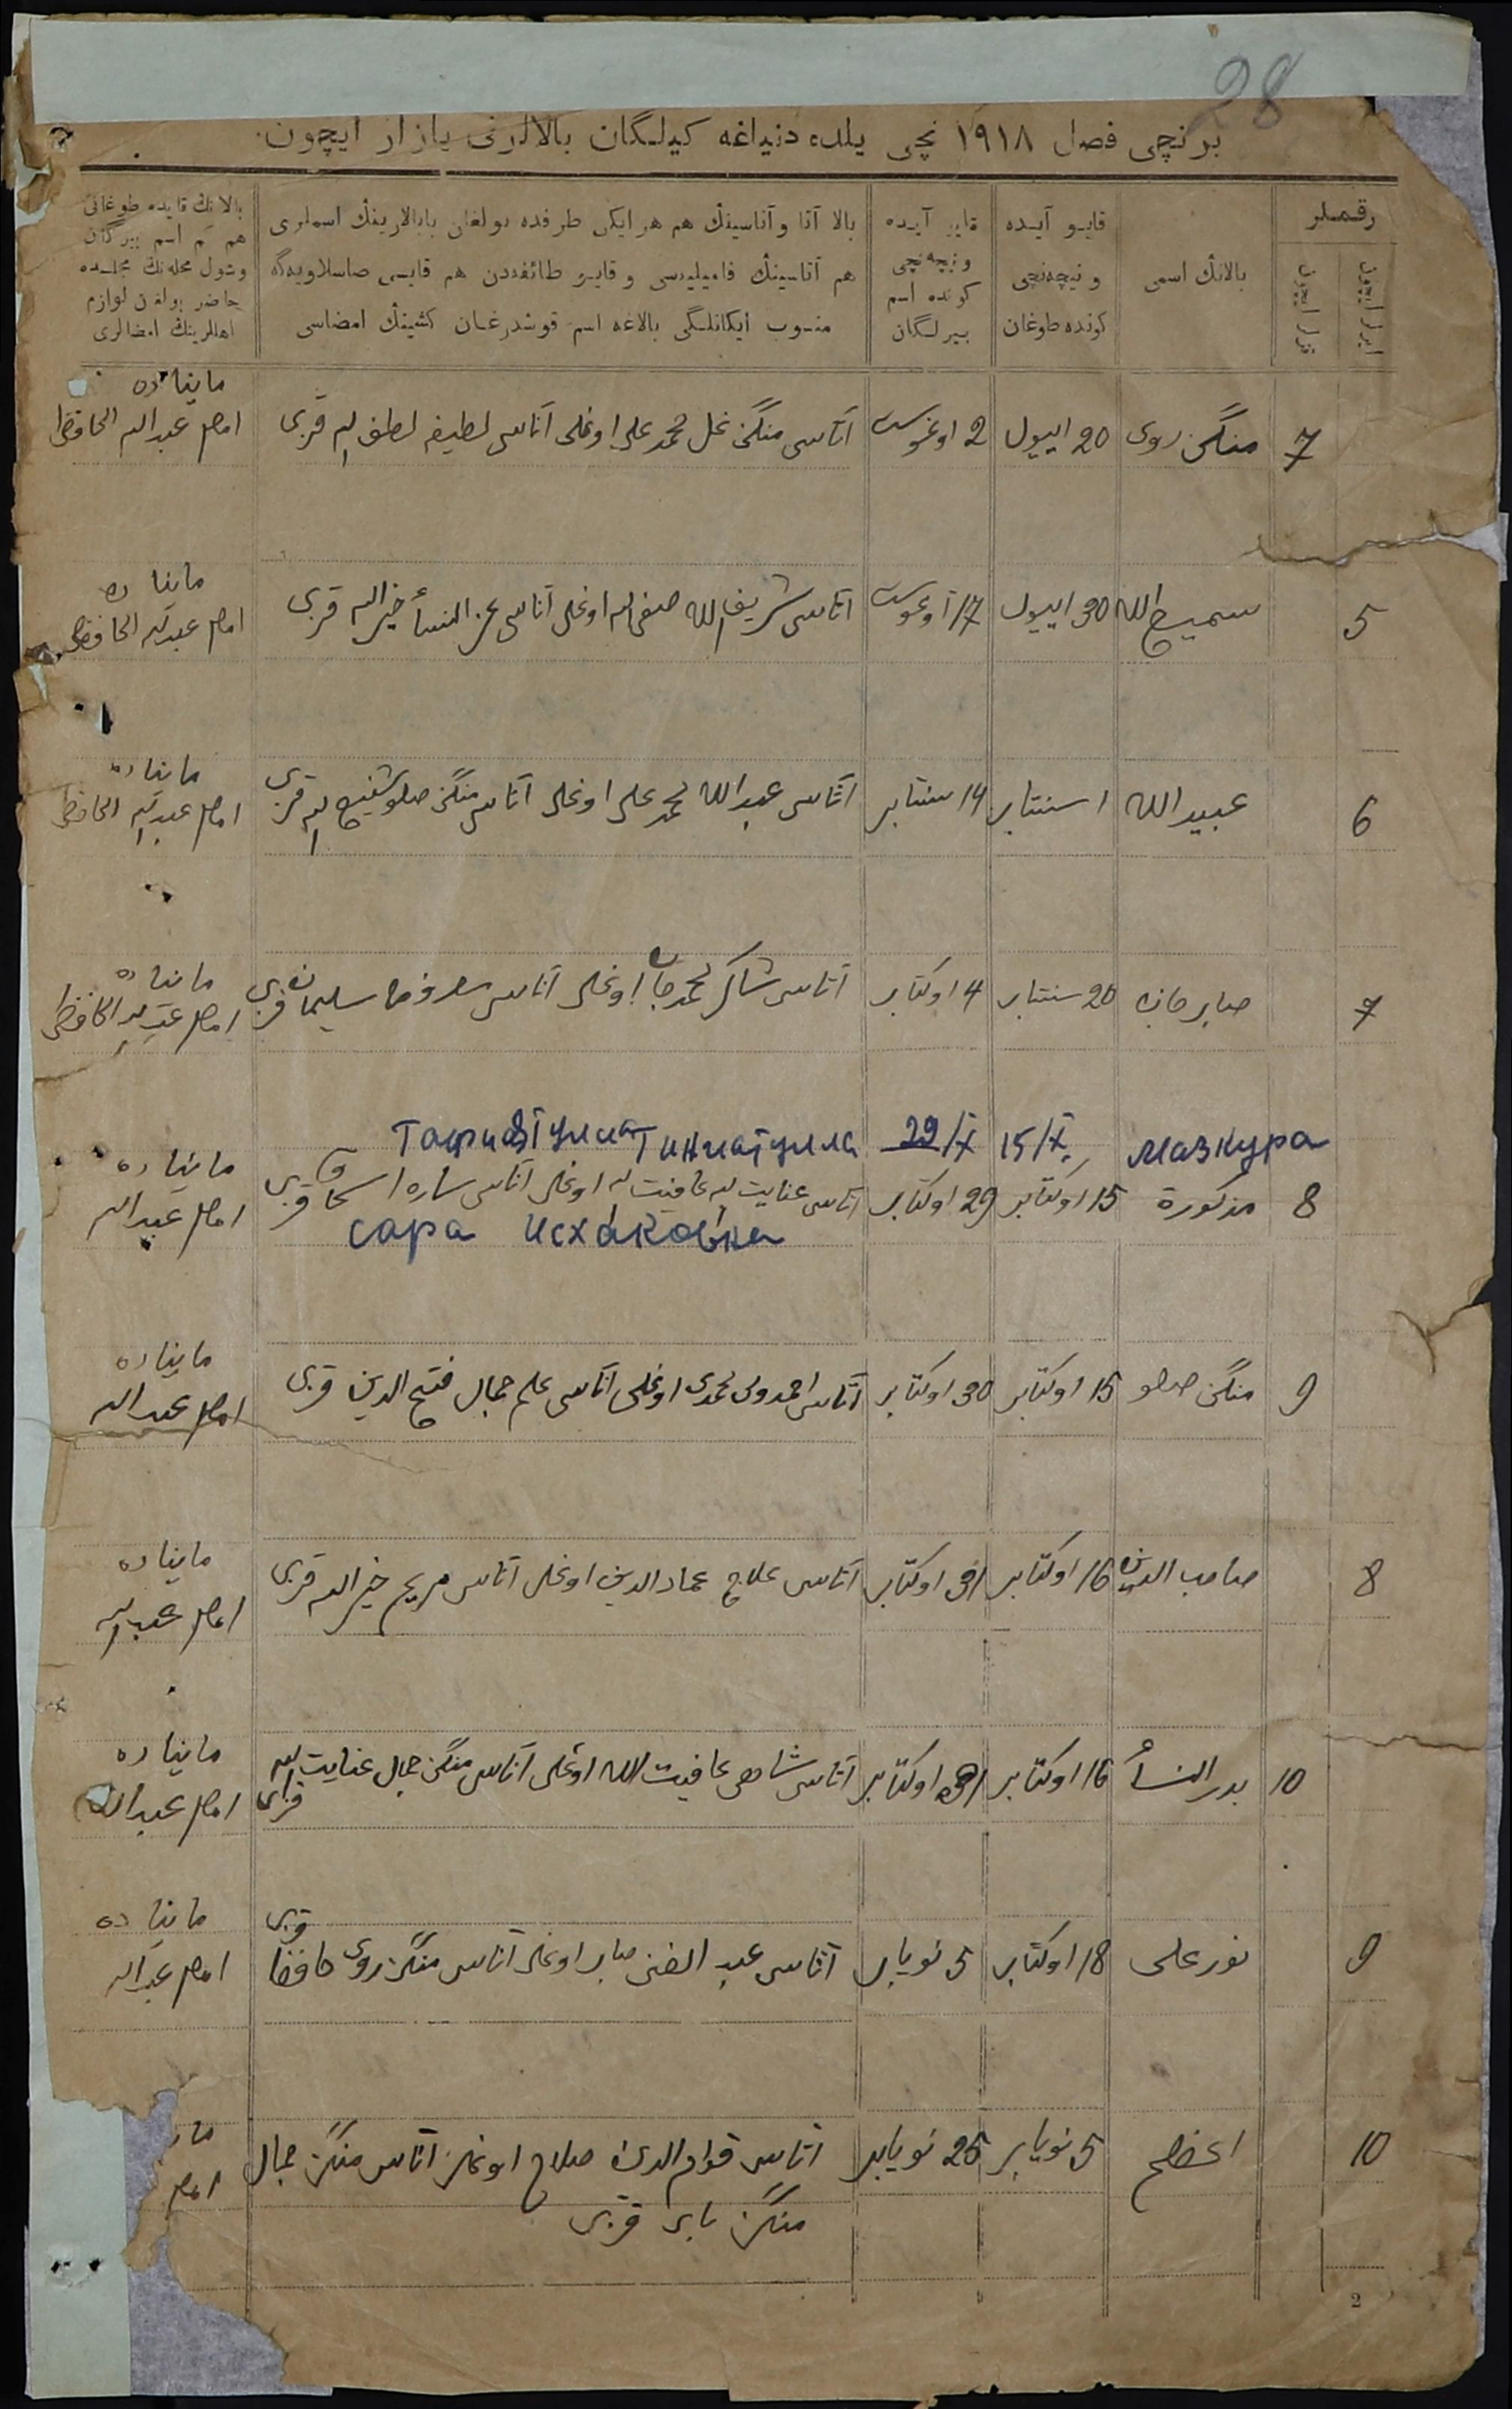 28
برنچی فصل ١٩١٨ نچی یلده دنیاغه کیلگان بالالرنی یازار ایچون.
رقملر
ایرلر ایچون
قزلر ایچون
بالانڭ اسمی
قایو آیده
و نیچه‌نچی
کونده طوغان
قایو آیده
و نیچه‌نچی
کونده اسم
بیرلگان
بالا آتا و آناسینڭ هم هر ایکی طرفده بولغان بابالارینڭ اسملری
هم آتاسینڭ فامیلیه‌سی و قایو طائفه‌دن هم قایسی صاسلاویه‌گه
منسوب ایکانلگی بالاغه اسم قوشدرغان کشینڭ امضاسی
بالانڭ قایده طوغانی
هم اسم بیرگان
وشول محله‌نڭ مجلسده
حاضر بولغان لوازم
اهللرینڭ امضالری
7 منگی روی 20 اییول 2 اوغوست آتاسی منگی غل محمد علی اوغلی آناسی لطیفه لطف الله قزی
امام عبدالله الحافظ
5 سمیح الله 30 اییول 17 آوغوست آتاسی شریف الله صفی الله اوغلی آناسی عز النسأ خیرالله قزی
امام عبدالله الحافظ
6 عبیدالله 1 سنتابر 14 سنتابر آتاسی عبدالله محمد علی اوغلی آناسی منگی صلو شفیع الله قزی
امام عبدالله الحافظ
7 صابرجان 20 سنتابر 4 اوکتابر آتاسی شاکر محمدجان اوغلی آناسی سلیمان قزی
امام عبدالله الحافظ
мазкура 15/X. 29/X Гиниатулла
8 مذکورة 15 اوکتابر 29 اوکتابر آتاسی عنایت الله عافیت الله اوغلی آناسی ساره اسحاق قزی
امام عبدالله
сара Исхаковна
9 منگی صلو 15 اوکتابر 30 اوکتابر آتاسی احمدولی محمدی اوغلی آناسی علم جمال فتح الدین قزی
امام عبدالله
8 صاحب الدین 16 اوکتابر 31 اوکتابر آتاسی علاج عماد الدین اوغلی آناسی مریم خیرالله قزی
امام عبدالله
10 بدر النسأ 16 اوکتابر 31 اوکتابر آتاسی عافیت الله اوغلی آناسی منگی جمال عنایت الله قزی
امام عبدالله
9 نورعلی 18 اوکتابر 5 نویابر آتاسی عبد الغنی صابر اوغلی آناسی منگی روی حافظ قزی
امام عبدالله
10 5 نویابر 25 نویابر آتاسی قوام الدین صلاح اوغلی آناسی منگی جمال
امام
منگی بای قزی
2